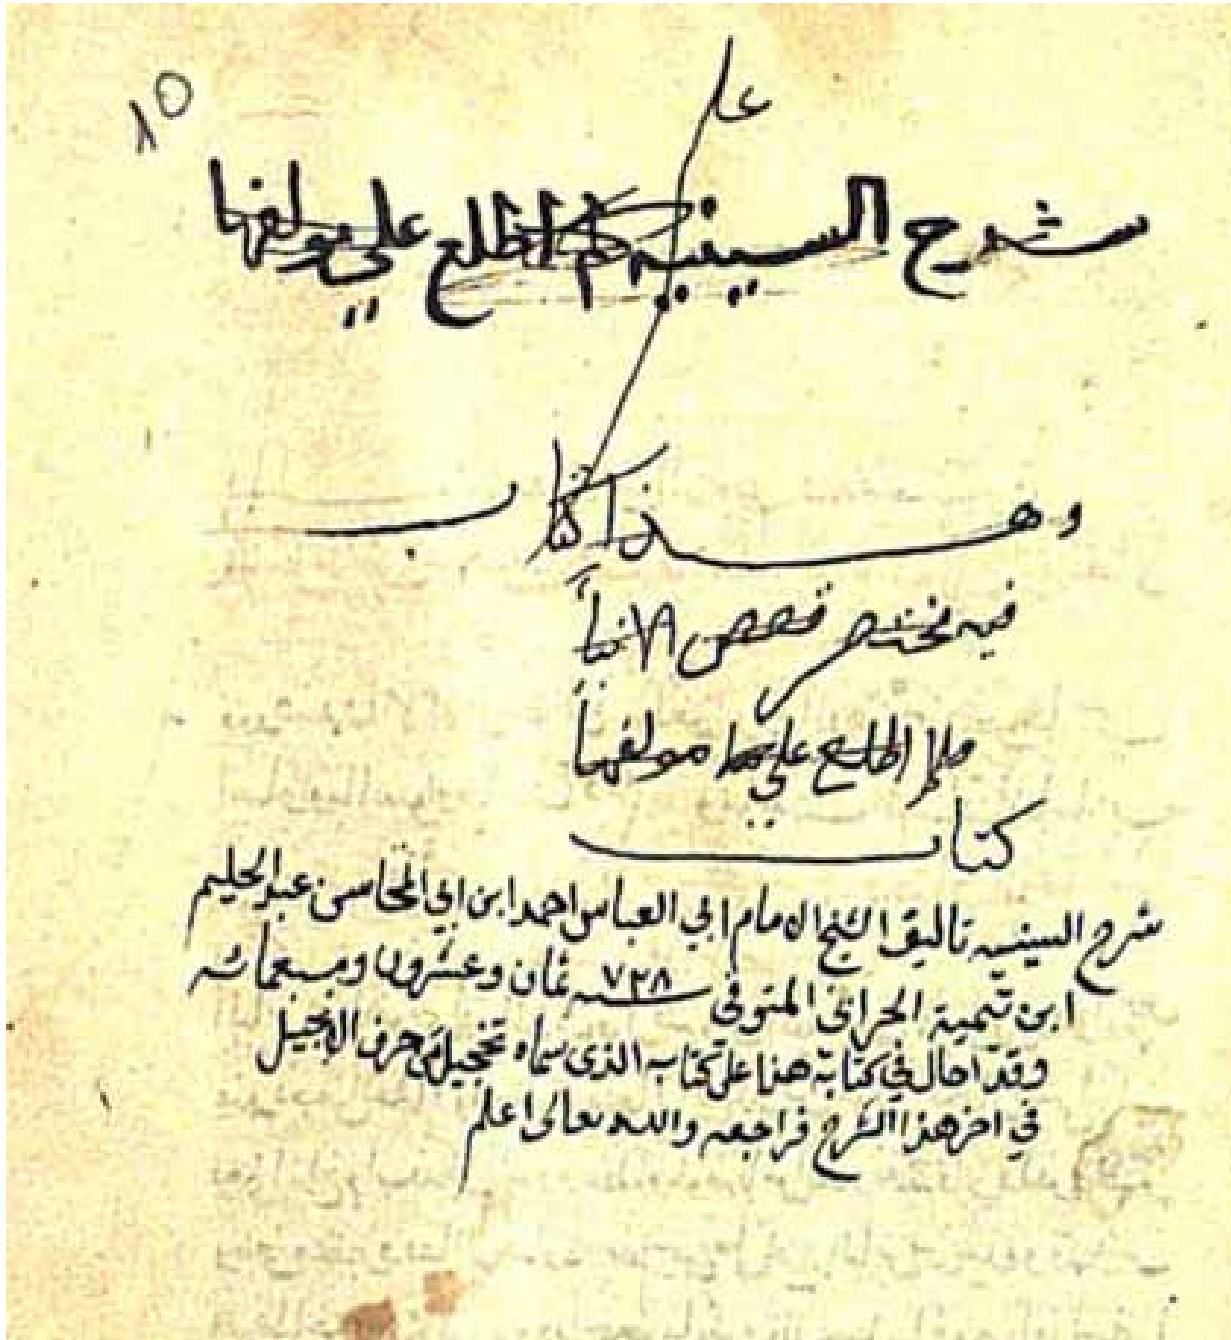 ١٥
عل
شرح السينيه لم اطلع علي مولفها
وهذا كتاب
فيه مختصر قصص الانبيا
ولم اطلع علي مولفها
كتاب
شرح السينيه تاليف الشيخ الامام ابي العباس احمد ابن ابي المحاسن عبد الحليم
ابن تيمية الحراني المتوفى سنه ٧٢٨ ثمان وعشرون وسبعمائه
وقد احال في كتابه هذا على كتابه الذى سماه تخجيل من حرف الانجيل
في اخر هذا الشرح فراجعه والله تعالى اعلم